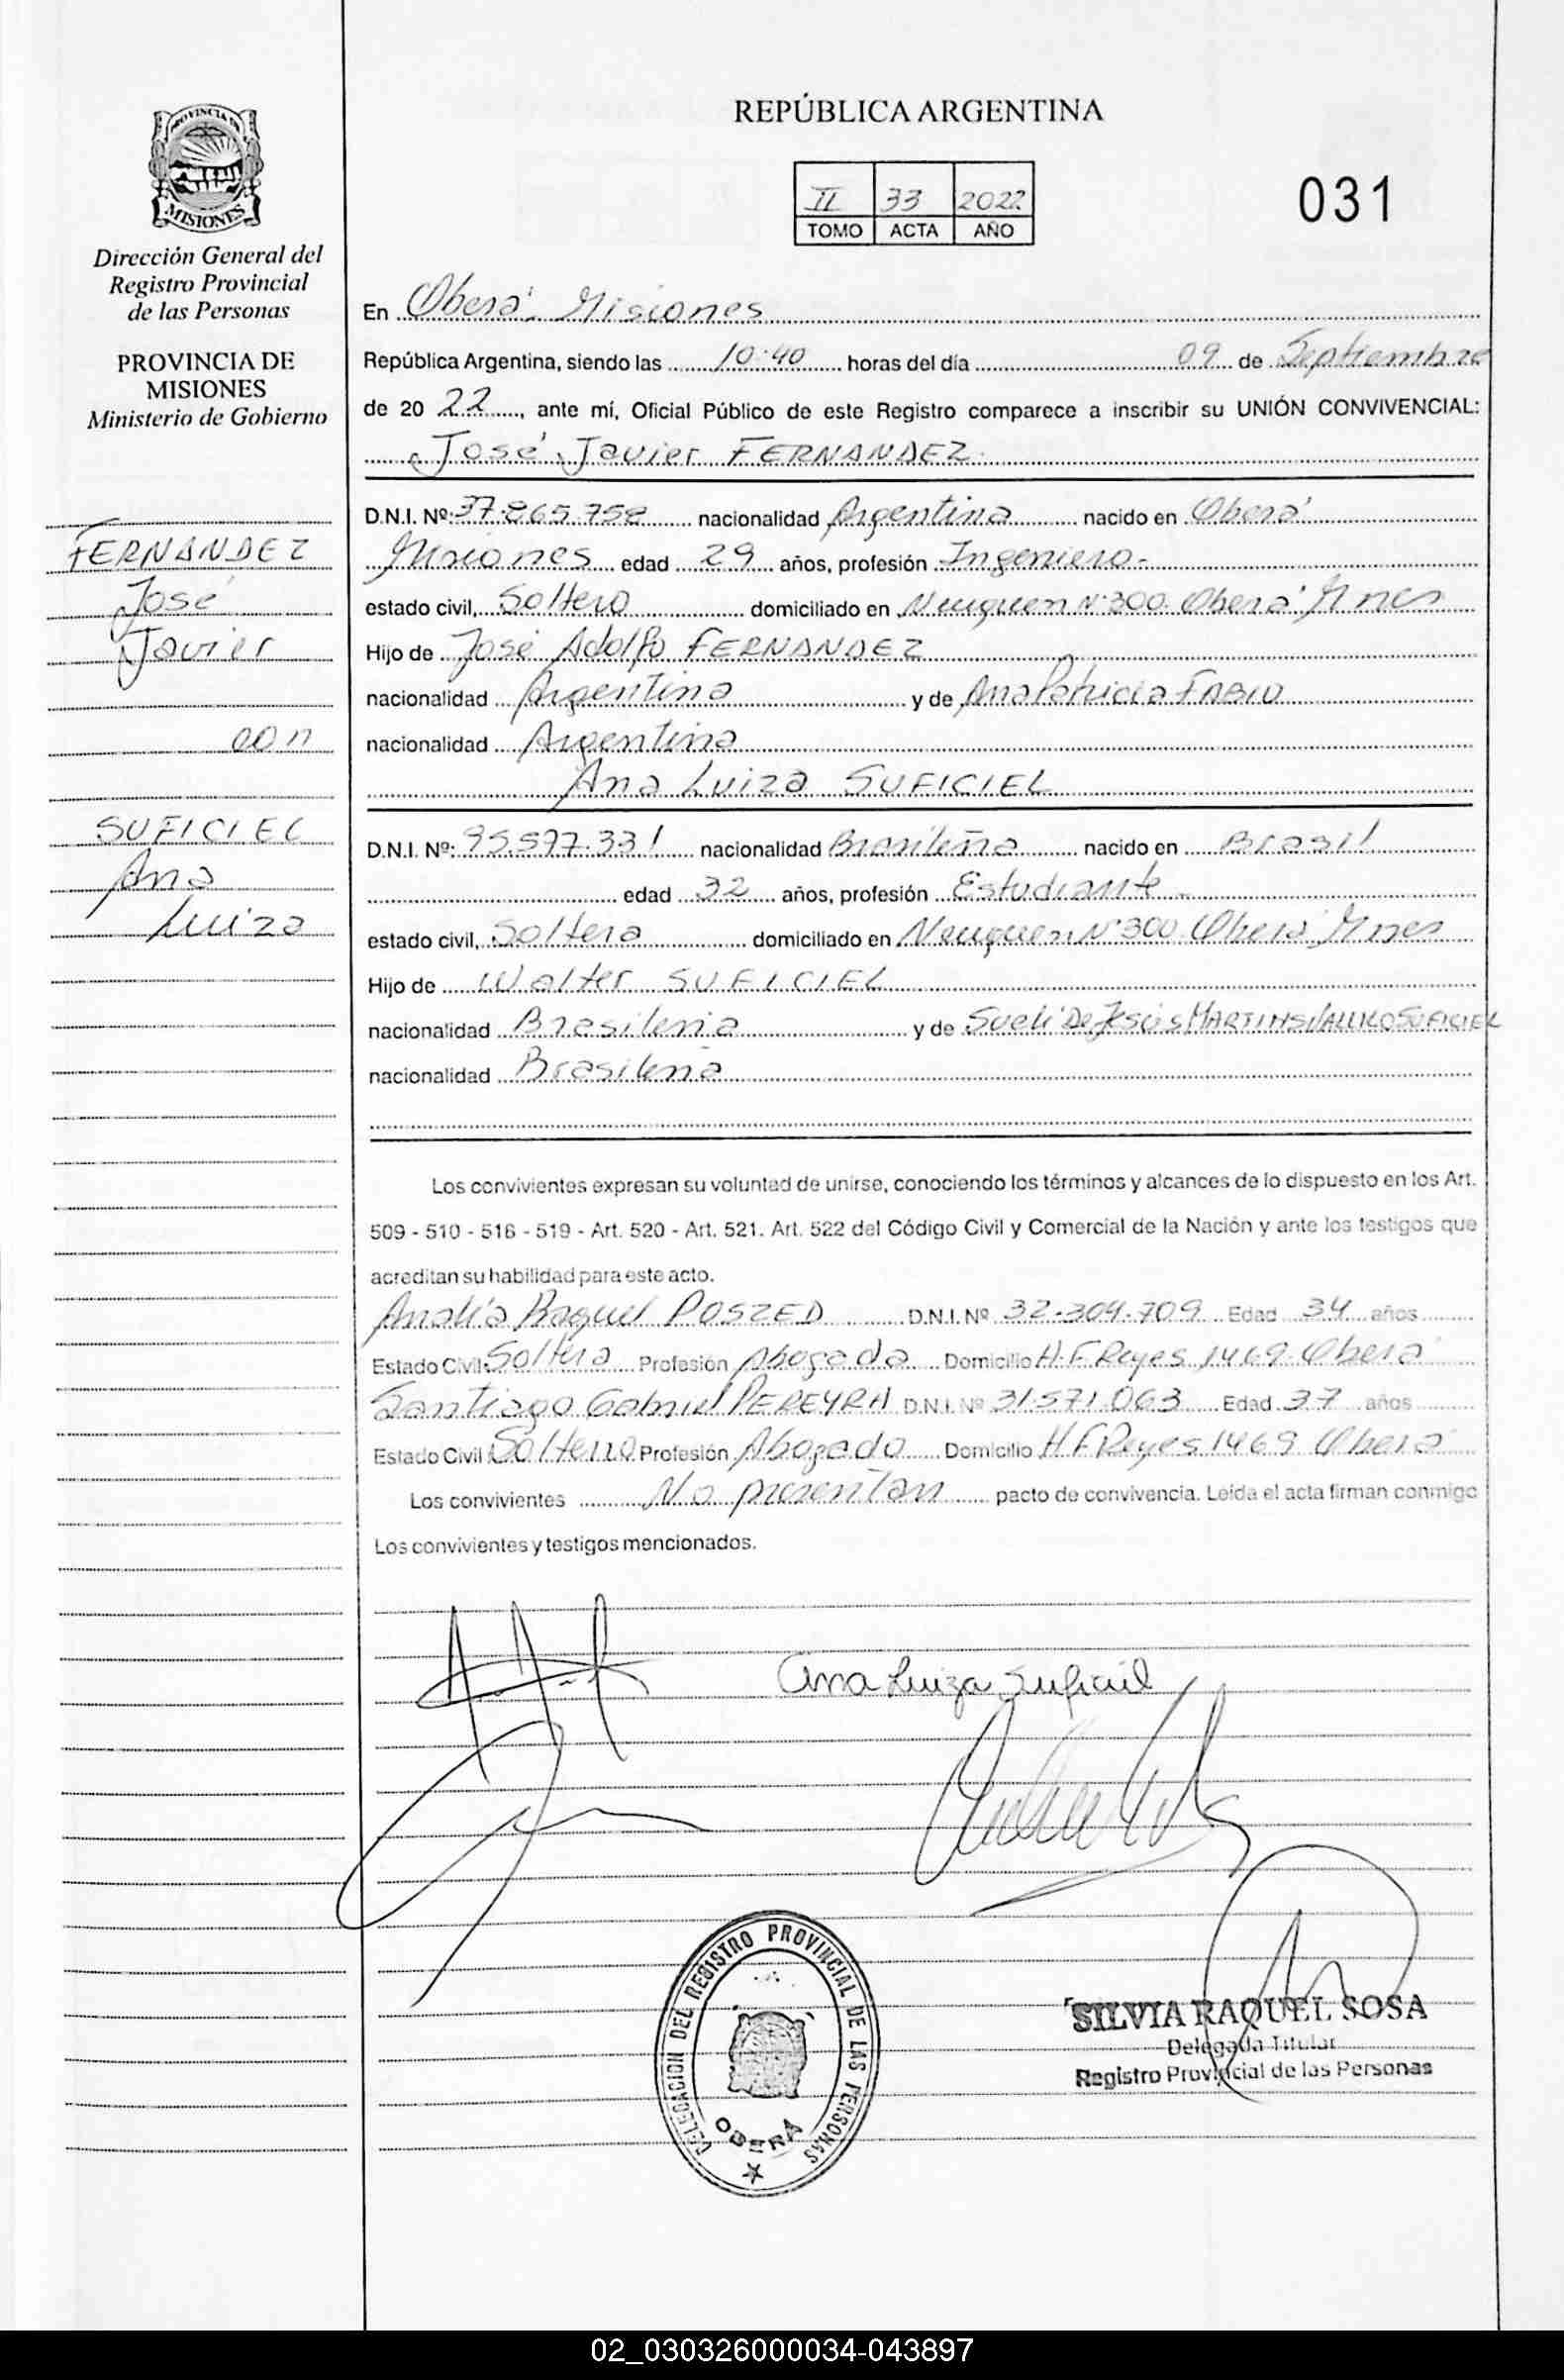 REPÚBLICA ARGENTINA
II 33 2022
TOMO ACTA AÑO
031
PROVINCIA DE
MISIONES
Dirección General del
Registro Provincial
de las Personas
PROVINCIA DE
MISIONES
Ministerio de Gobierno
FERNANDEZ
José
Javier
con
SUFICIEL
Ana
Luiza
En Oberá Misiones
República Argentina, siendo las 10:40 horas del día 09 de Septiembre
de 20 22, ante mí, Oficial Público de este Registro comparece a inscribir su UNIÓN CONVIVENCIAL:
José Javier FERNANDEZ
D.N.I. Nº 37.865.758 nacionalidad Argentina nacido en Oberá
Misiones edad 29 años, profesión Ingeniero-
estado civil, Soltero domiciliado en Neuquen Nº300 Oberá Mnes
Hijo de José Adolfo FERNANDEZ
nacionalidad Argentina y de Ana Patricia FABIO
nacionalidad Argentina
Ana Luiza SUFICIEL
D.N.I. Nº: 95.597.331 nacionalidad Brasileña nacido en Brasil
edad 32 años, profesión Estudiante -
estado civil, Soltera domiciliado en Neuquen Nº300 Oberá Mnes
Hijo de Walter SUFICIEL
nacionalidad Brasilenia y de Sueli De Jesús MARTINS SUFICIEL
nacionalidad Brasilenia
Los convivientes expresan su voluntad de unirse, conociendo los términos y alcances de lo dispuesto en los Art.
509 - 510 - 516 - 519 - Art. 520 - Art. 521. Art. 522 del Código Civil y Comercial de la Nación y ante los testigos que
acreditan su habilidad para este acto.
Analía Raquel POSZED D.N.I. Nº 32.304.709 Edad 34 años
Estado Civil: Soltera Profesión Abogada Domicilio H.F. Reyes 1469 Oberá
Santiago Gabriel PEREYRA D.N.I. Nº 31.571.063 Edad 37 años
Estado Civil Soltero Profesión Abogado Domicilio H.F Reyes 1469 Oberá
Los convivientes No presentan pacto de convivencia. Leída el acta firman conmigo
Los convivientes y testigos mencionados.
Ana Luiza Suficiel
DELEGACION DEL REGISTRO PROVINCIAL DE LAS PERSONAS
OBERÁ
SILVIA RAQUEL SOSA
Delegada Titular
Registro Provincial de las Personas
02_030326000034-043897